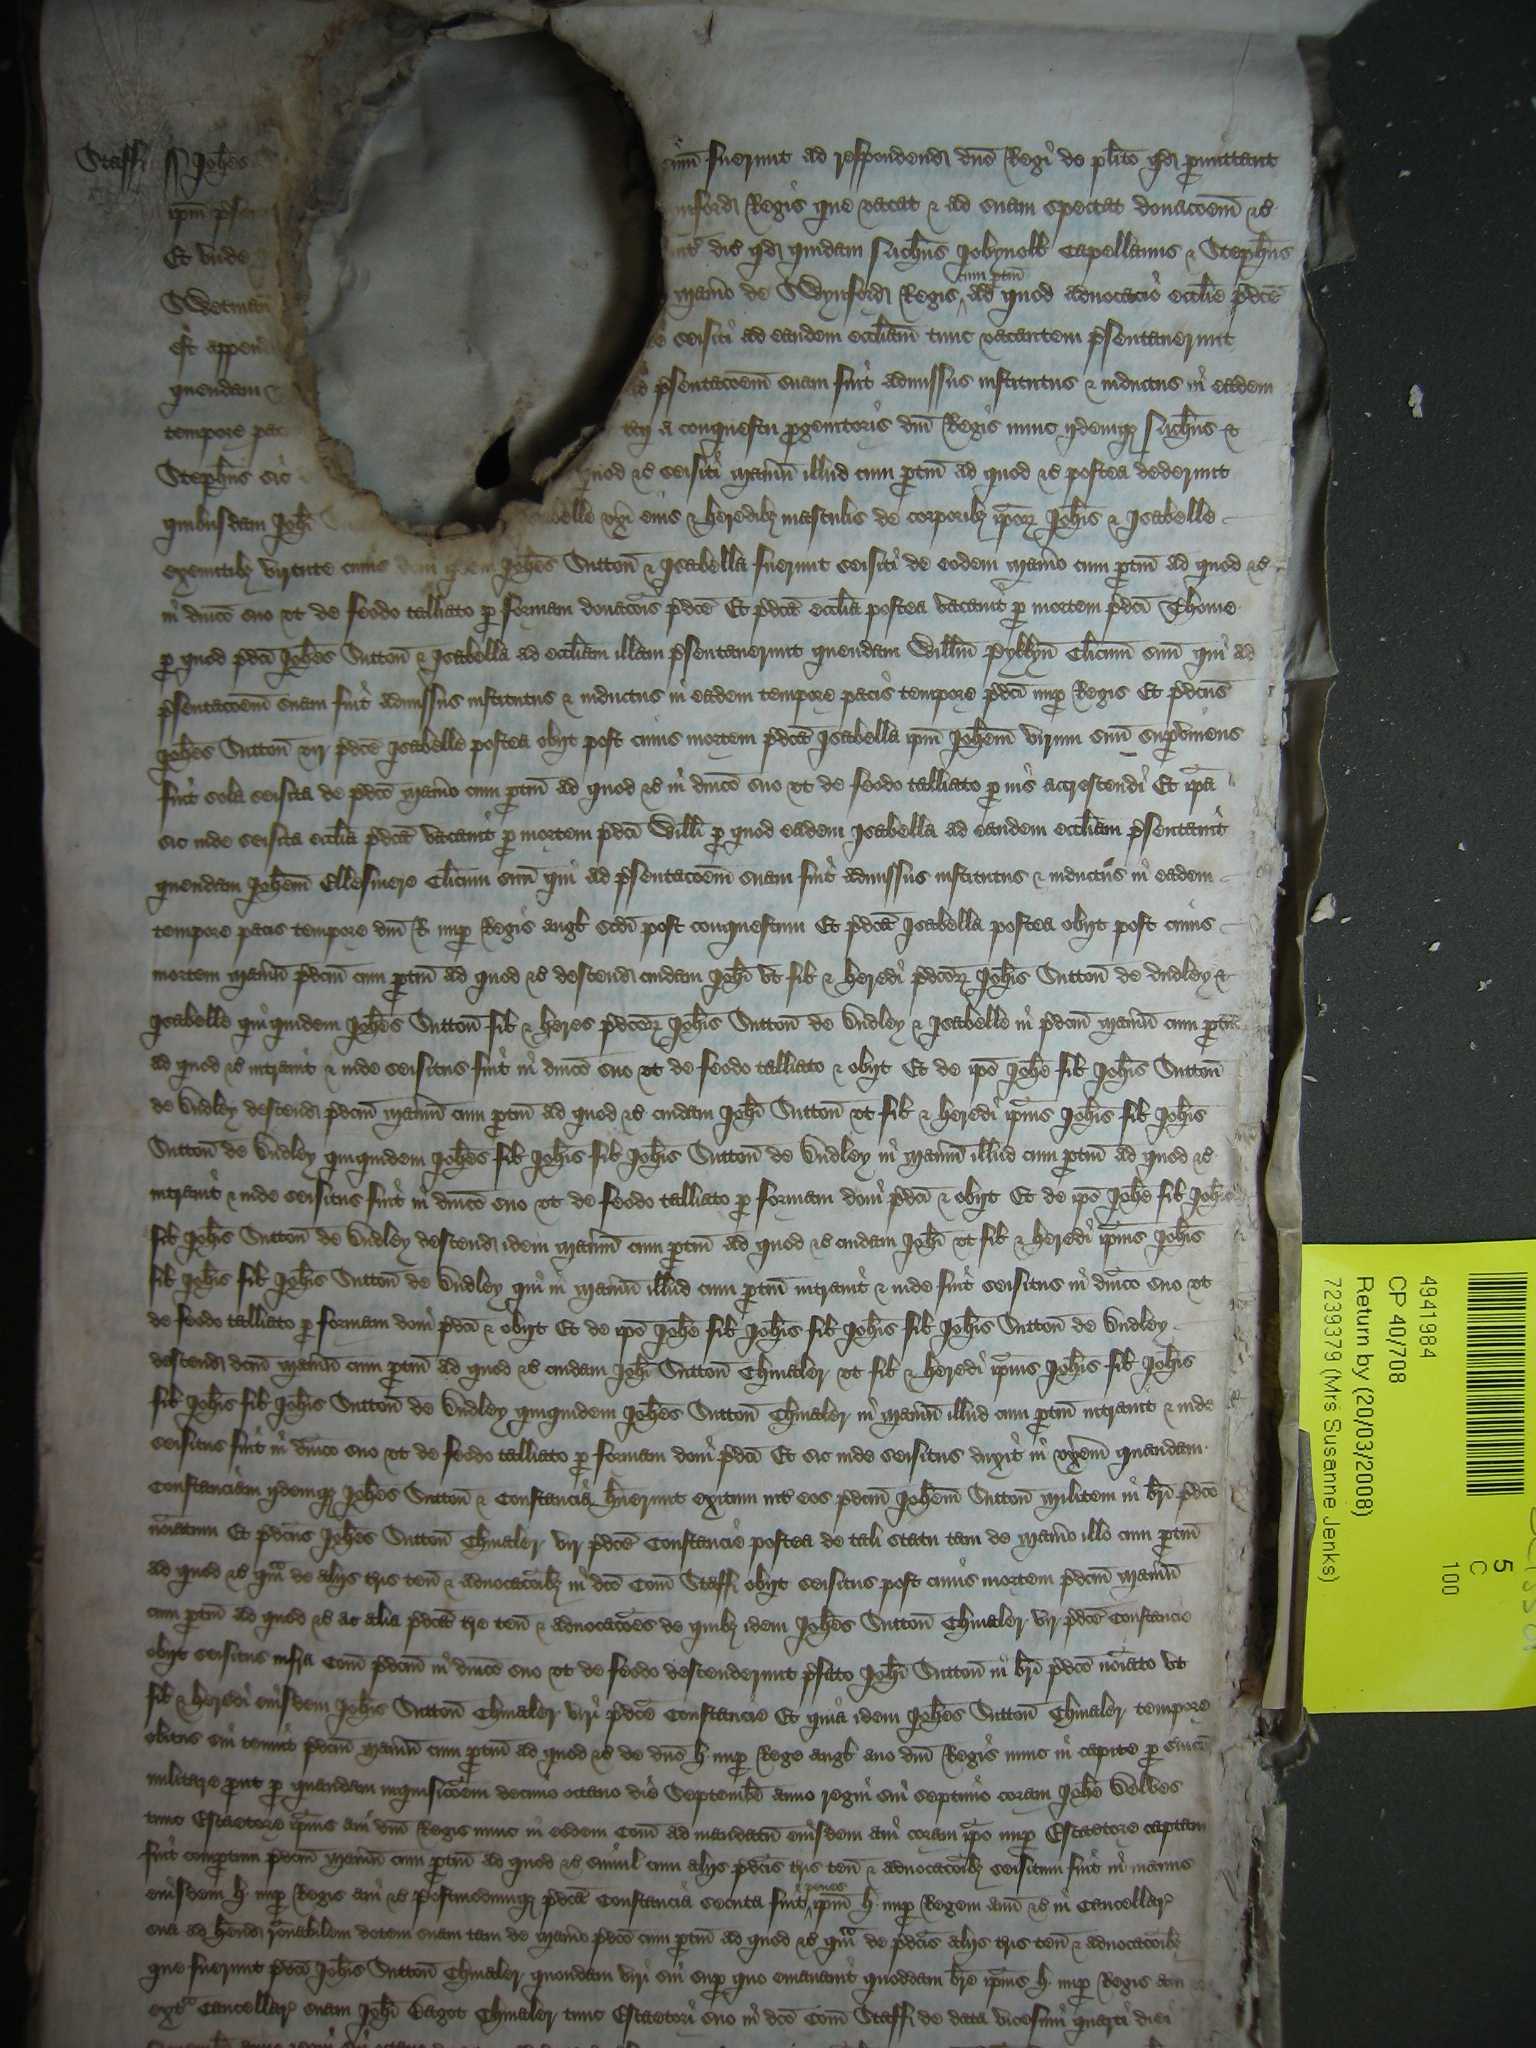 Staff ss Joh̃es um̃ fuerunt ad respondend dño Regi de pl̃ito qd p̱mittant
ip̃m p̃sen nford Regis que vacat & ad suam spectat donac̃oem &c
Et unde dic̃ qd quidam Ric̃hus Jobynolk Capellanus & Steph̃us
Swetman man̄io de Swynford Regis cum p̱tiñ ad quod advocac̃io eccl̃ie p̃dc̃e
est append seisiti ad eandem eccl̃iam tunc vacantem p̃sentaverunt
quendam p̃sentac̃oem suam fuit admissus institutus & inductus in eadem
tempore pac a conquestu p̱genitoris dñi Regis nunc ijdemqȝ Ric̃hus &
Steph̃us sic quod &c seisiti man̄iu illud cum p̱tiñ ad quod &c postea dederunt
quibusdam Joh̃i abelle ux̃i eius & heredibȝ masculis de corporibȝ ip̃oȝ Joh̃is & Isabelle
exeuntibȝ virtute cuius doni idem Joh̃es Sutton̄ & Isabella fuerunt seisiti de eodem man̄io cum p̱tiñ ad quod &c
in dñico suo ut de feodo talliato p̱ formam donac̃ois p̃dc̃e Et p̃dc̃a eccl̃ia postea vacavit p̱ mortem p̃dc̃i Thome
p̱ quod p̃dc̃i Joh̃es Sutton̄ & Isabella ad eccl̃iam illam p̃sentaverunt quendam Will̃m Pyllyn̄ Cl̃icum suũ qui ad
p̃sentac̃oem suam fuit admissus institutus & inductus in eadem tempore pacis tempore p̃dc̃i nup̱ Regis Et p̃dc̃us
Joh̃es Sutton̄ vir p̃dc̃e Isabelle postea obijt post cuius mortem p̃dc̃a Isabella ip̃m Joh̃em virum suũ sup̱vivens
fuit sola seisita de p̃dc̃o man̄io cum p̱tiñ ad quod &c in dñico suo ut de feodo talliato p̱ ius accrescendi Et ip̃a
sic inde seisita eccl̃ia p̃dc̃a vacavit p̱ mortem p̃dc̃i Will̃i p̱ quod eadem Isabella ad eandem eccl̃iam p̃sentavit
quendam Joh̃em Ellesmere Cl̃icum suũ qui ad p̃sentac̃oem suam fuit admissus institutus & inductus in eadem
tempore pacis tempore dñi R nup̱ Regis angł sc̃di post conquestum Et p̃dc̃a Isabella postea obijt post cuius
mortem man̄iu p̃dc̃m cum p̱tiñ ad quod &c descend cuidam Joh̃i ut fił & heredi p̃dc̃oȝ Joh̃is Sutton̄ de Dudley &
Isabelle qui quidem Joh̃es Sutton̄ fił & heres p̃dc̃oȝ Joh̃is Sutton̄ de Dudley & Isabelle in p̃dc̃m man̄iu cum p̱tiñ
ad quod &c intravit & inde seisitus fuit in dñico suo ut de feodo talliato & obijt Et de ip̃o Joh̃e fił Joh̃is Sutton̄
de Dudley descend p̃dc̃m man̄iu cum p̱tiñ ad quod &c cuidam Joh̃i Sutton̄ ut fił & heredi ip̃ius Joh̃is fił Joh̃is
Sutton̄ de Dudley quiquidem Joh̃es fił Joh̃is fił Joh̃is Sutton̄ de Dudley in man̄iu illud cum p̱tiñ ad quod &c
intravit & inde seisitus fuit in dñico suo ut de feodo talliato p̱ formam doni p̃dc̃i & obijt Et de ip̃o Joh̃e fił Joh̃is
fił Joh̃is Sutton̄ de Dudley descend idem man̄iu cum p̱tiñ ad quod &c cuidam Joh̃i ut fił & heredi ip̃ius Joh̃is
fił Joh̃is fił Joh̃is Sutton̄ de Dudley qui in man̄iu illud cum p̱tiñ intravit & inde fuit seisitus in dñico suo ut
de feodo talliato p̱ formam doni p̃dc̃i & obijt Et de ip̃o Joh̃e fił Joh̃is fił Joh̃is fił Joh̃is Sutton̄ de Dudley
descend dc̃m man̄iu cum p̱tiñ ad quod &c cuidam Joh̃i Sutton̄ Chivaler ut fił & heredi ip̃ius Joh̃is fił Joh̃is
fił Joh̃is fił Joh̃is Sutton̄ de Dudley quiquidem Joh̃es Sutton̄ Chivaler in man̄iu illud cum p̱tiñ intravit & inde
seisitus fuit in dñico suo ut de feodo talliato p̱ formam doni p̃dc̃i Et sic inde seisitus duxit in ux̃em quandam
Constanciam ijdemqȝ Joh̃es Sutton̄ & Constancia h̃uerunt exitum int̃ eos p̃dc̃m Joh̃em Sutton̄ militem in br̃i p̃dc̃o
noĩatum Et p̃dc̃us Joh̃es Sutton̄ Chivaler vir p̃dc̃e Constancie postea de tali statu tam de man̄io illo cum p̱tiñ
ad quod &c qũm de alijs t̃ris teñ & advocac̃oibȝ in dc̃o Com̃ Staff obijt seisitus post cuius mortem p̃dc̃m man̄iu
cum p̱tiñ ad quod &c ac alia p̃dc̃a t̃re teñ & advocac̃oes de quibȝ idem Joh̃es Sutton̄ Chivaler vir p̃dc̃e Constancie
obijt seisitus infra Com̃ p̃dc̃m in dñico suo ut de feodo descenderunt p̃fato Joh̃i Sutton̄ in br̃i p̃dc̃o noĩato ut
fił & heredi eiusdem Joh̃is Sutton̄ Chivaler viri p̃dc̃e Constancie Et quia idem Joh̃es Sutton̄ Chivaler tempore
obitus sui tenuit p̃dc̃m man̄iu cum p̱tiñ ad quod &c de dño H nup̱ Rege angł avo dñi Regis nunc in capite p̱ s̃vic̃
militare put p̱ quandam inquisic̃oem decimo octavo die Septembr̃ anno regni sui septimo coram Joh̃e Delves
tunc Escaetore ip̃ius avi dñi Regis nunc in eodem Com̃ ad mandatũ eiusdem avi coram ip̃o nup̱ Escaetore captam
fuit comp̱tum p̃dc̃m man̄iu cum p̱tiñ ad quod &c simul cum alijs p̃dc̃is t̃ris teñ & advocac̃oibȝ seisitum fuit in manus
eiusdem H nup̱ Regis avi &c postmodumqȝ p̃dc̃a Constancia secuta fuit penes ip̃m H nup̱ Regem avũ &c in Cancellar̃
sua ad h̃end r̃onabilem dotem suam tam de man̄io p̃dc̃o cum p̱tiñ ad quod &c qũm de p̃dc̃is alijs t̃ris teñ & advocac̃oibȝ
que fuerunt p̃dc̃i Joh̃is Sutton̄ Chivaler quondam viri sui sup̱ quo emanavit quoddam br̃e ip̃ius H nup̱ Regis avi
ext̃ Cancellar̃ suam Joh̃i Bagot Chivaler tunc Escaetori suo in dc̃o Com̃ Staff de data vicesimi quarti diei
4941984
CP 40/708
Return by (20/03/2008)
7239379 (Mrs Susanne Jenks)
5
C
100